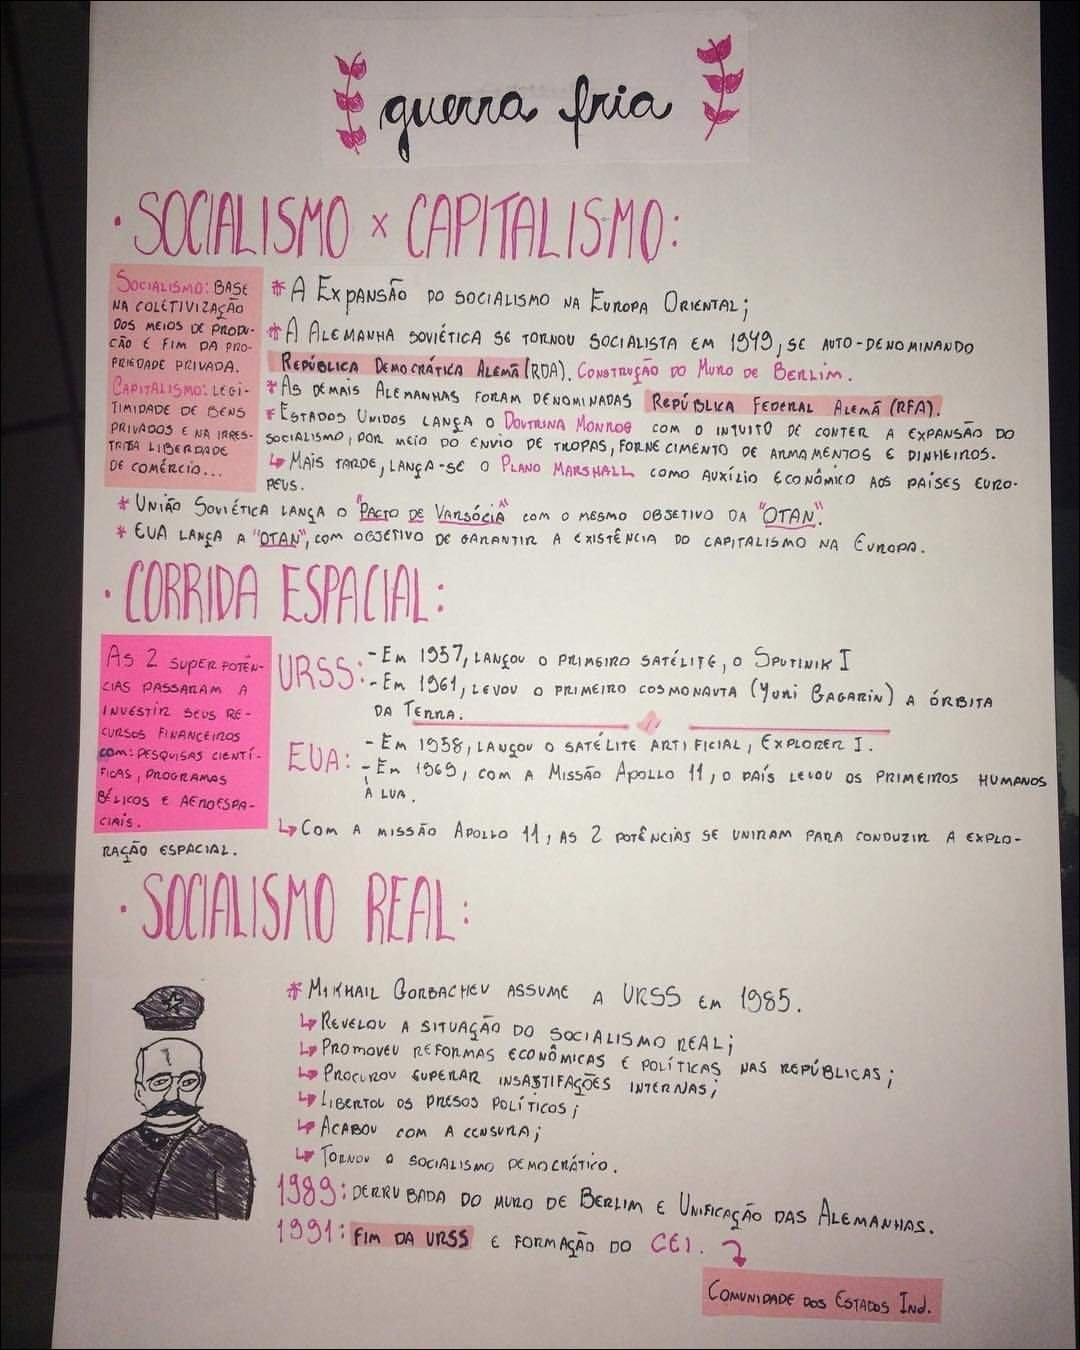 guerra fria
• SOCIALISMO x CAPITALISMO:
SOCIALISMO: BASE
NA COLETIVIZAÇÃO
DOS MEIOS DE PRODU-
ÇÃO E FIM DA PRO-
PRIEDADE PRIVADA.
CAPITALISMO: LEGI-
TIMIDADE DE BENS
PRIVADOS E NA IRRES-
TRITA LIBERDADE
DE COMÉRCIO...
* A EXPANSÃO DO SOCIALISMO NA EUROPA ORIENTAL;
* A ALEMANHA SOVIÉTICA SE TORNOU SOCIALISTA EM 1949, SE AUTO-DENOMINANDO
REPÚBLICA DEMOCRÁTICA ALEMÃ (RDA). CONSTRUÇÃO DO MURO DE BERLIM.
* AS DEMAIS ALEMANHAS FORAM DENOMINADAS REPÚBLICA FEDERAL ALEMÃ (RFA).
* ESTADOS UNIDOS LANÇA O DOUTRINA MONROE COM O INTUITO DE CONTER A EXPANSÃO DO
SOCIALISMO, POR MEIO DO ENVIO DE TROPAS, FORNECIMENTO DE ARMAMENTOS E DINHEIROS.
↳ MAIS TARDE, LANÇA-SE O PLANO MARSHALL COMO AUXÍLIO ECONÔMICO AOS PAÍSES EURO-
PEUS.
* UNIÃO SOVIÉTICA LANÇA O "PACTO DE VARSÓCIA" COM O MESMO OBJETIVO DA "OTAN".
* EUA LANÇA A "OTAN", COM OBJETIVO DE GARANTIR A EXISTÊNCIA DO CAPITALISMO NA EUROPA.
• CORRIDA ESPACIAL:
AS 2 SUPERPOTÊN-
CIAS PASSARAM A
INVESTIR SEUS RE-
CURSOS FINANCEIROS
com: PESQUISAS CIENTÍ-
FICAS, PROGRAMAS
BÉLICOS E AEROESPA-
CIAIS.
URSS: - EM 1957, LANÇOU O PRIMEIRO SATÉLITE, O SPUTINIK I
- EM 1961, LEVOU O PRIMEIRO COSMONAUTA (YURI GAGARIN) A ÓRBITA
DA TERRA.
EUA: - EM 1958, LANÇOU O SATÉLITE ARTIFICIAL, EXPLORER I.
- EM 1969, COM A MISSÃO APOLLO 11, O PAÍS LEVOU OS PRIMEIROS HUMANOS
À LUA.
↳ COM A MISSÃO APOLLO 11, AS 2 POTÊNCIAS SE UNIRAM PARA CONDUZIR A EXPLO-
RAÇÃO ESPACIAL.
• SOCIALISMO REAL:
* MIKHAIL GORBACHEV ASSUME A URSS EM 1985.
↳ REVELOU A SITUAÇÃO DO SOCIALISMO REAL;
↳ PROMOVEU REFORMAS ECONÔMICAS E POLÍTICAS NAS REPÚBLICAS;
↳ PROCUROU SUPERAR INSASTIFAÇÕES INTERNAS;
↳ LIBERTOU OS PRESOS POLÍTICOS;
↳ ACABOU COM A CENSURA;
↳ TORNOU O SOCIALISMO DEMOCRÁTICO.
1989: DERRUBADA DO MURO DE BERLIM E UNIFICAÇÃO DAS ALEMANHAS.
1991: FIM DA URSS E FORMAÇÃO DO CEI.
COMUNIDADE DOS ESTADOS IND.